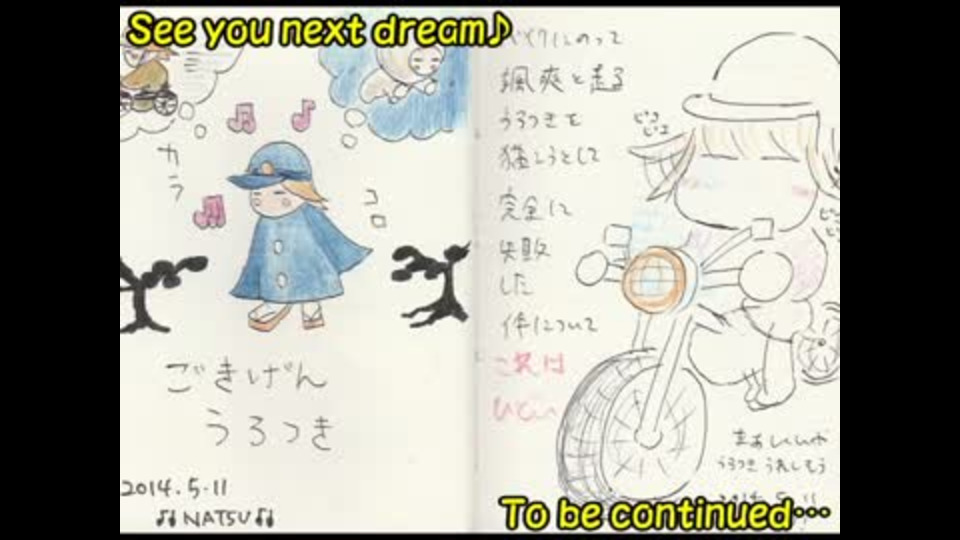 See you next dream♪
カラ
コロ
ごきげん
うろつき
2014.5.11
♫ NATSU ♫
バイクにのって
颯爽と走る
うろつきを
描こうとして
完全に
失敗
した
件について
これは
ひどい
ピコ
ピコ
まぁいいや
うろつきうれしそう
2014.5.11
To be continued…